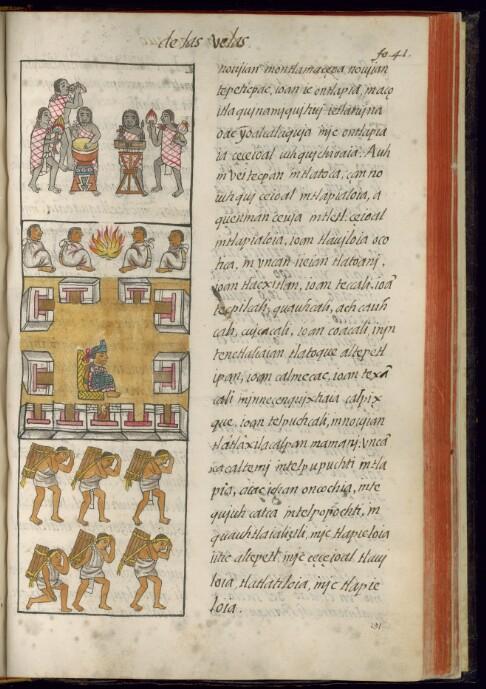 de las Velas.
fo. 41.
novijan montlamaceva, novijan
tepeticpac, ioan ic ontlapia, maço
itla quinamiquiz
oac yoaval njc ontlapia
ia ceceioal iuh quichivaia. Auh
in vei tecpan in tlatoca, can no
iuh quj ceioal in tlapialoia, a
quenman cevia in tletl. ceioal
in tlapialoia, ioan tlaujloia oco
tica, in vncan ieian tlatoanj,
ioan tlacxitlan, ioan tecali, ioã
tecpilcali, quauhcali, achcauh
cali, cujcacali, ioan coacali injn
tenetlaliaian tlatoque altepetl
ipan, ioan calmecac, ioan texã
cali innecenquixtiaia calpix
que, ioan telpuchcali, in novijan
tlatlaxilacalpan mamanj. vncã
cacaltemj in telpupuchti in tla
pia, oncochia, in te
qujuh catca in telpopochti, in
quauhtlaializtli, njc tlapieloia
iitic altepetl, njc ceceioal tlauj
loia, tlatlatiloia, njc tlapie
loia.